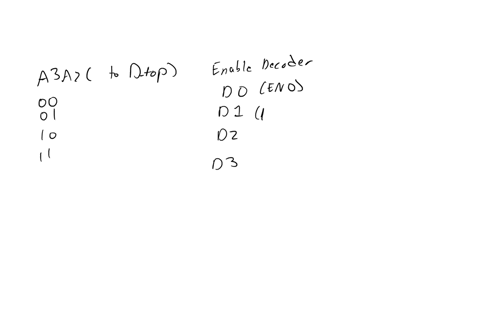 A3A2( to Dtop) Enable Decoder
00 D0 (EN0)
01 D1 (1
10 D2
11 D3